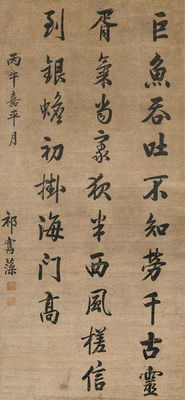 巨魚吞吐不知勞千古靈
胥氣尚豪夜半西風槎信
到銀蟾初掛海門高
丙午嘉平月
祁寯藻